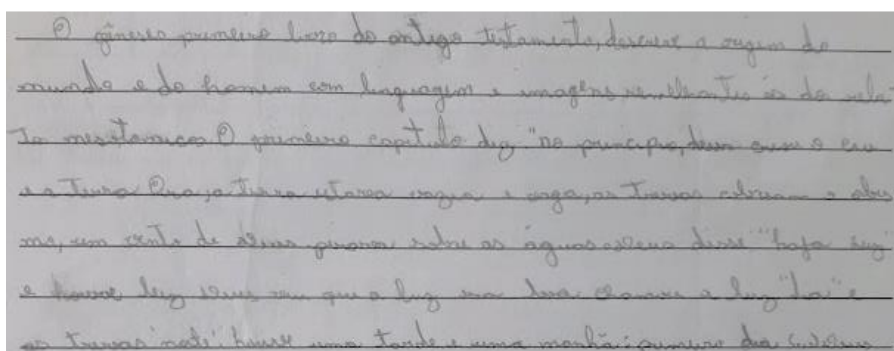 O gêneses primeiro livro do antigo testamento, descreve a origem do
mundo e do homem com linguagem e imagens semelhantes ás do rela
To mesotamicos O primeiro capitulo diz "no principio, deus criou o ceu
e a Terra Ora, a terra estava vazia e vaga, as Trevas cobriam o abis
mo, um vento de deus pirava sobre as águas deus disse "haja luz"
e houve luz deus viu que a luz era boa chamou a luz "dia" e
as trevas "noite". houve uma tarde e uma manhã: primeiro dia